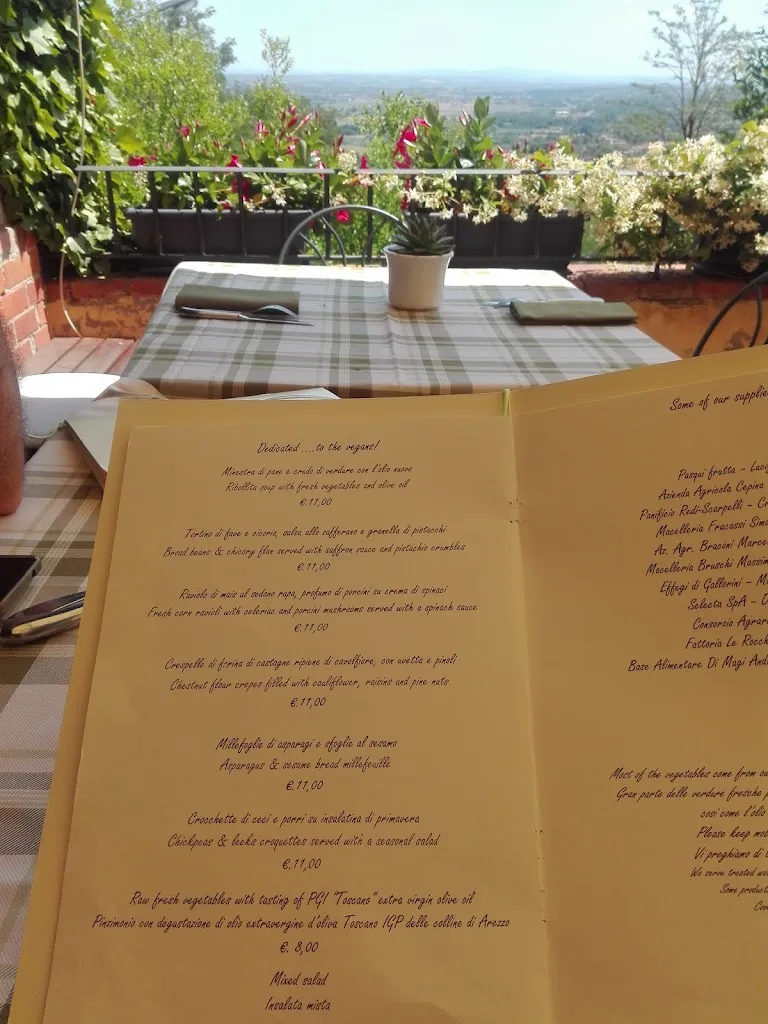 Dedicated ....to the vegans!
Minestra di pane e crudo di verdure con l'olio nuovo
Ribollita soup with fresh vegetables and olive oil
€.11,00
Tortino di fave e cicoria, salsa allo zafferano e granella di pistacchi
Broad beans & chicory flan served with saffron sauce and pistachio crumbles
€.11,00
Raviolo di mais al sedano rapa, profumo di porcini su crema di spinaci
Fresh corn ravioli with celeriac and porcini mushrooms served with a spinach sauce
€.11,00
Crespelle di farina di castagne ripiene di cavolfiore, con uvetta e pinoli
Chestnut flour crepes filled with cauliflower, raisins and pine nuts
€.11,00
Millefoglie di asparagi e sfoglie al sesamo
Asparagus & sesame bread millefeuille
€.11,00
Crocchette di ceci e porri su insalatina di primavera
Chickpeas & leeks croquettes served with a seasonal salad
€.11,00
Raw fresh vegetables with tasting of PGI "Toscano" extra virgin olive oil
Pinzimonio con degustazione di olio extravergine d'oliva Toscano IGP delle colline di Arezzo
€. 8,00
Mixed salad
Insalata mista
Some of our supplie
Pasqui frutta – Luci
Azienda Agricola Cepina
Panificio Redi-Scarpelli – Cr
Macelleria Fracassi Sim
Az. Agr. Braconi Marce
Macelleria Bruschi Massim
Effegi di Gallorini – M
Selecta SpA –
Consorzio Agrar
Fattoria Le Rocch
Base Alimentare Di Magi And
Most of the vegetables come from ou
Gran parte delle verdure fresche p
così come l'olio
Please keep mob
Vi preghiamo di
We serve treated wa
Some product
Cov